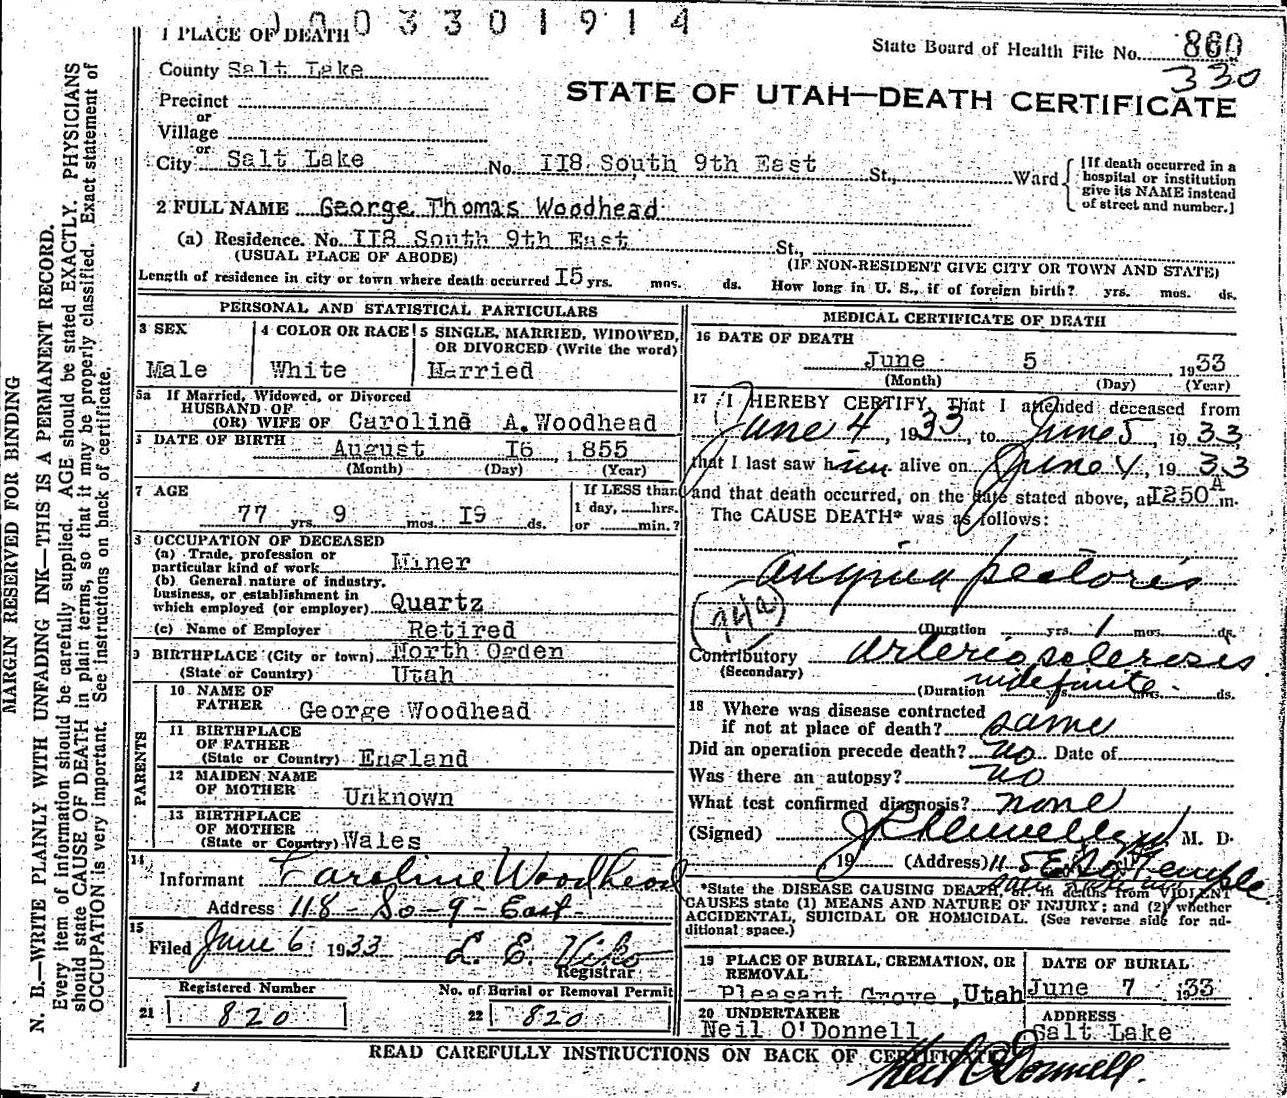 0003301914
1 PLACE OF DEATH
State Board of Health File No. 860
330
County Salt Lake
STATE OF UTAH—DEATH CERTIFICATE
Precinct
or
Village
or
City Salt Lake No. 118 South 9th East St., Ward
[If death occurred in a
hospital or institution
give its NAME instead
of street and number.]
2 FULL NAME George Thomas Woodhead
(a) Residence. No. 118 South 9th East St.,
(USUAL PLACE OF ABODE) (IF NON-RESIDENT GIVE CITY OR TOWN AND STATE)
Length of residence in city or town where death occurred 15 yrs. mos. ds. How long in U. S., if of foreign birth? yrs. mos. ds.
PERSONAL AND STATISTICAL PARTICULARS
3 SEX
Male
4 COLOR OR RACE
White
5 SINGLE, MARRIED, WIDOWED,
OR DIVORCED (Write the word)
Married
5a If Married, Widowed, or Divorced
HUSBAND OF
(OR) WIFE OF Caroline A. Woodhead
DATE OF BIRTH
August 16, 1855
(Month) (Day) (Year)
7 AGE
77 yrs. 9 mos. 19 ds.
If LESS than
1 day, hrs.
or min.?
OCCUPATION OF DECEASED
(a) Trade, profession or
particular kind of work Miner
(b) General nature of industry,
business, or establishment in
which employed (or employer) Quartz
(c) Name of Employer Retired
9 BIRTHPLACE (City or town) North Ogden
(State or Country) Utah
PARENTS
10 NAME OF
FATHER George Woodhead
11 BIRTHPLACE
OF FATHER
(State or Country) England
12 MAIDEN NAME
OF MOTHER Unknown
13 BIRTHPLACE
OF MOTHER
(State or Country) Wales
14
Informant Caroline Woodhead
Address 118-So-9-East-
15
Filed June 6 1933 L. E. Viko
Registrar
Registered Number
21 820
No. of Burial or Removal Permit
22 820
MEDICAL CERTIFICATE OF DEATH
16 DATE OF DEATH
June 5, 1933
(Month) (Day) (Year)
17 I HEREBY CERTIFY, That I attended deceased from
June 4, 1933, to June 5, 1933
that I last saw him alive on June 4, 1933
and that death occurred, on the date stated above, at 1250 A m.
The CAUSE DEATH* was as follows:
angina pectoris
(94a)
(Duration yrs. 1 mos. ds.
Contributory arteriosclerosis
(Secondary)
(Duration indefinite yrs. mos. ds.
18 Where was disease contracted
if not at place of death? same
Did an operation precede death? no Date of
Was there an autopsy? no
What test confirmed diagnosis? none
(Signed) M. D.
19 (Address) 115 E. So Temple
*State the DISEASE CAUSING DEATH, or in deaths from VIOLENT
CAUSES state (1) MEANS AND NATURE OF INJURY; and (2) whether
ACCIDENTAL, SUICIDAL OR HOMICIDAL. (See reverse side for ad-
ditional space.)
19 PLACE OF BURIAL, CREMATION, OR
REMOVAL
Pleasant Grove, Utah
DATE OF BURIAL
June 7 1933
20 UNDERTAKER
Neil O'Donnell
ADDRESS
Salt Lake
READ CAREFULLY INSTRUCTIONS ON BACK OF CERTIFICATE
Neil O'Donnell.
MARGIN RESERVED FOR BINDING
N. B.—WRITE PLAINLY WITH UNFADING INK—THIS IS A PERMANENT RECORD.
Every item of information should be carefully supplied. AGE should be stated EXACTLY. PHYSICIANS
should state CAUSE OF DEATH in plain terms, so that it may be properly classified. Exact statement of
OCCUPATION is very important. See instructions on back of certificate.